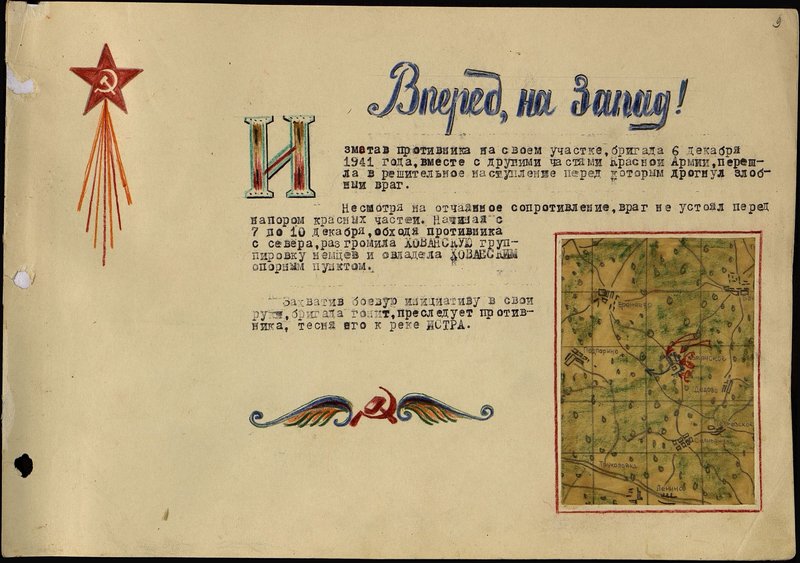 9
Вперед, на Запад!
Изматав противника на своем участке, бригада 6 декабря
1941 года, вместе с другими частями Красной Армии, переш-
ла в решительное наступление перед которым дрогнул злоб-
ный враг.
Несмотря на отчаянное сопротивление, враг не устоял перед
напором красных частей. Начиная с
7 до 10 декабря, обходя противника
с севера, разгромила ХОВАНСКУЮ груп-
пировку немцев и овладела
опорным пунктом.
Захватив боевую инициативу в свои
руки, бригада гонит, преследует против-
ника, тесня его к реке ИСТРА.
Дедово
Ленино